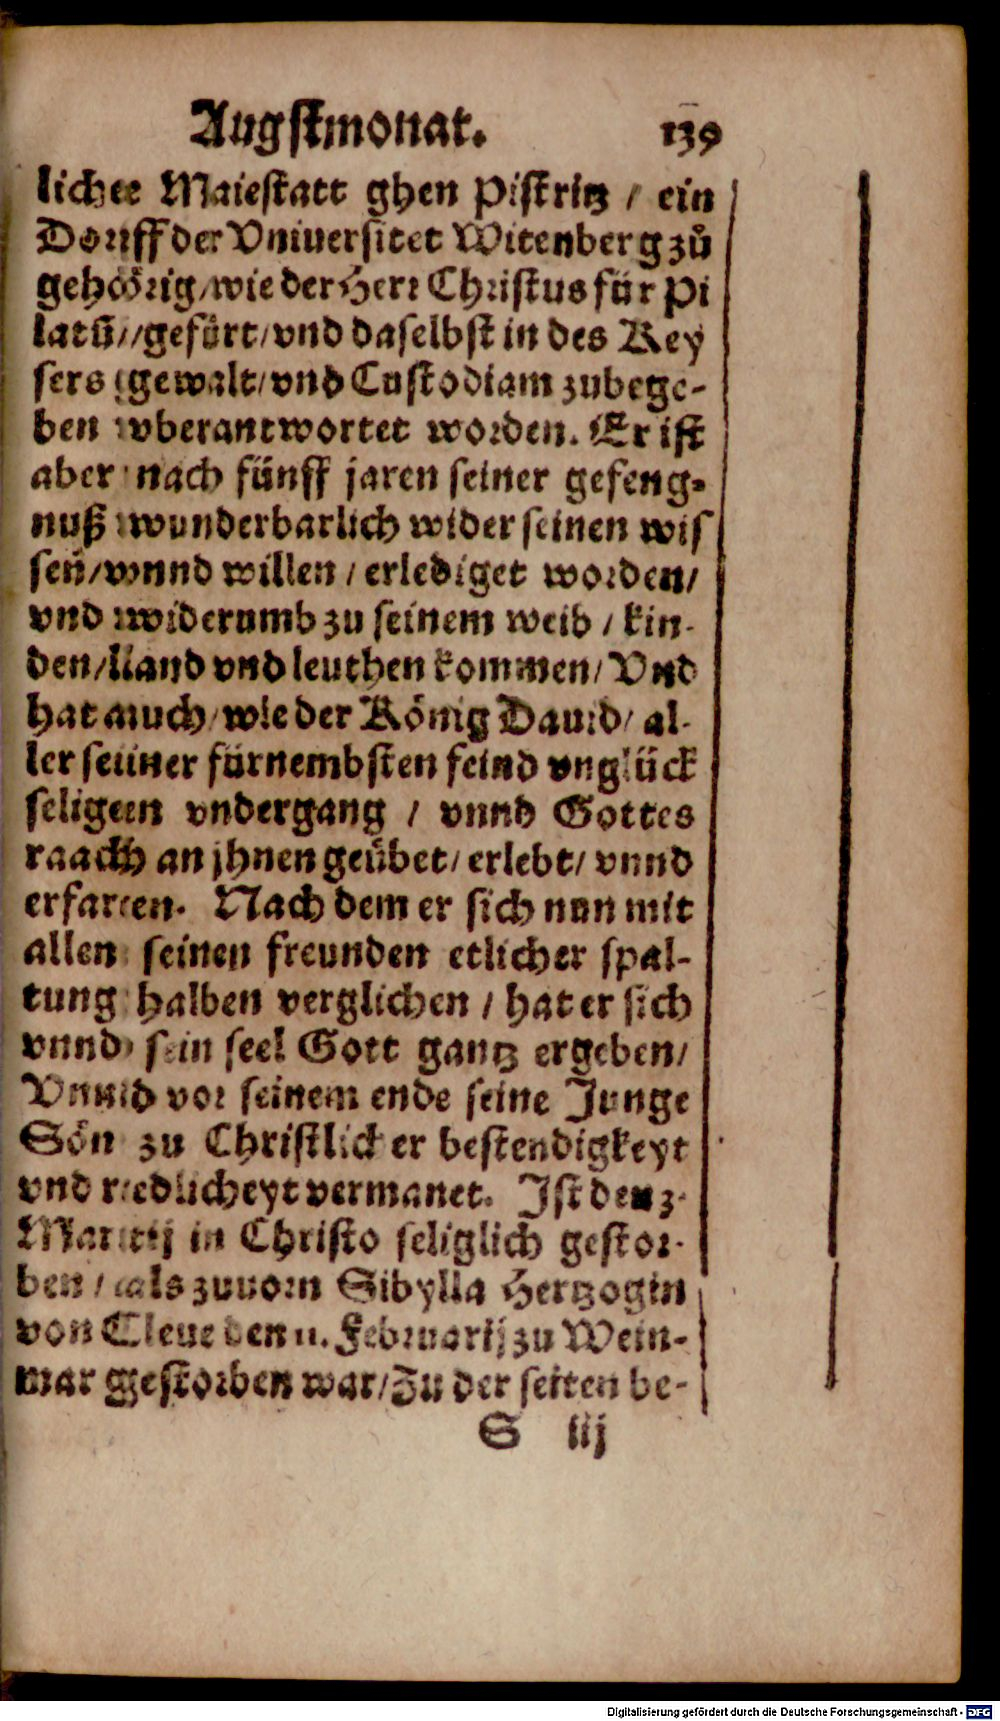 Augstmonat. 139
licher Maiestatt ghen Pistritz / ein
Dorff der Vniuersitet Witenberg zů
gehörig / wie der Herr Christus für Pi
latū / gefürt / vnd daselbst in des Key
sers gewalt / vnd Custodiam zubege-
ben vberantwortet worden. Er ist
aber nach fünff jaren seiner gefeng-
nuß wunderbarlich wider seinen wis
sen / vnnd willen / erlediget worden /
vnd widerumb zu seinem weib / kin-
den / land vnd leuthen kommen / Vnd
hat auch / wie der König Dauid / al-
ler seiner fürnembsten feind vnglück
seligen vndergang / vnnd Gottes
raach an jhnen geübet / erlebt / vnnd
erfaren. Nach dem er sich nun mit
allen seinen freunden etlicher spal-
tung halben verglichen / hat er sich
vnnd sein seel Gott gantz ergeben /
Vnnd vor seinem ende seine Junge
Sön zu Christlicher bestendigkeyt
vnd redlicheyt vermanet. Ist den 3.
Martij in Christo seliglich gestor-
ben / als zuuorn Sibylla Hertzogin
von Cleue den 11. Februarij zu Wein-
mar gestorben war / Zu der seiten be-
S iij
Digitalisierung gefördert durch die Deutsche Forschungsgemeinschaft - DFG